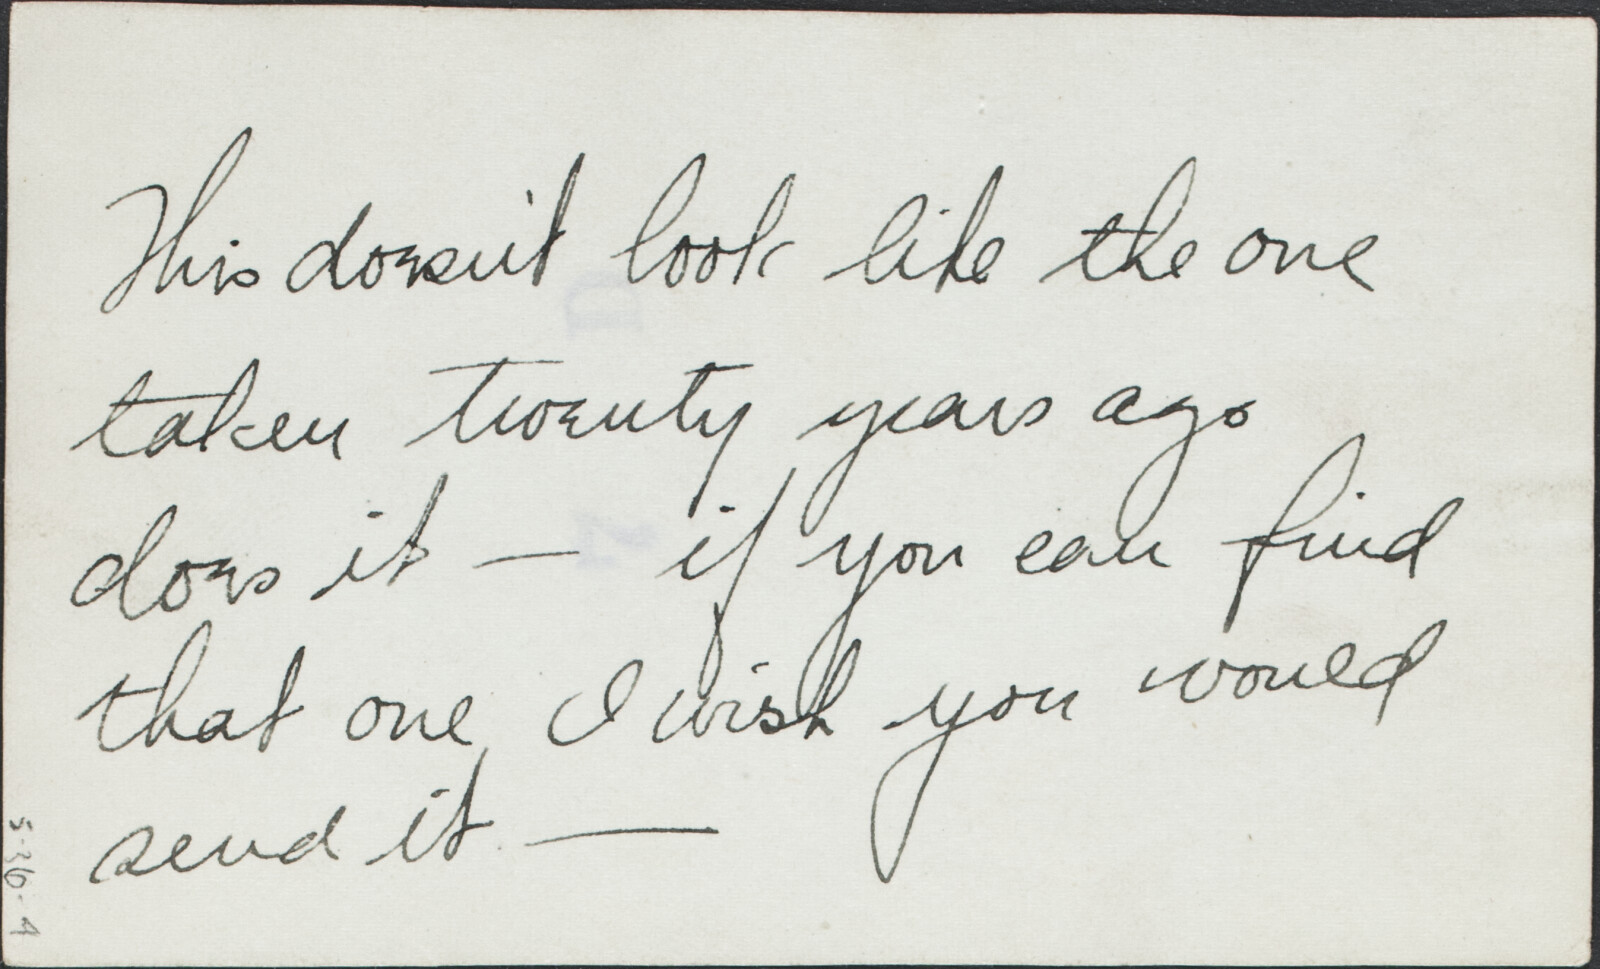 This doesn't look like the one
taken twenty years ago
does it — if you can find
that one I wish you would
send it. —
5-36-A